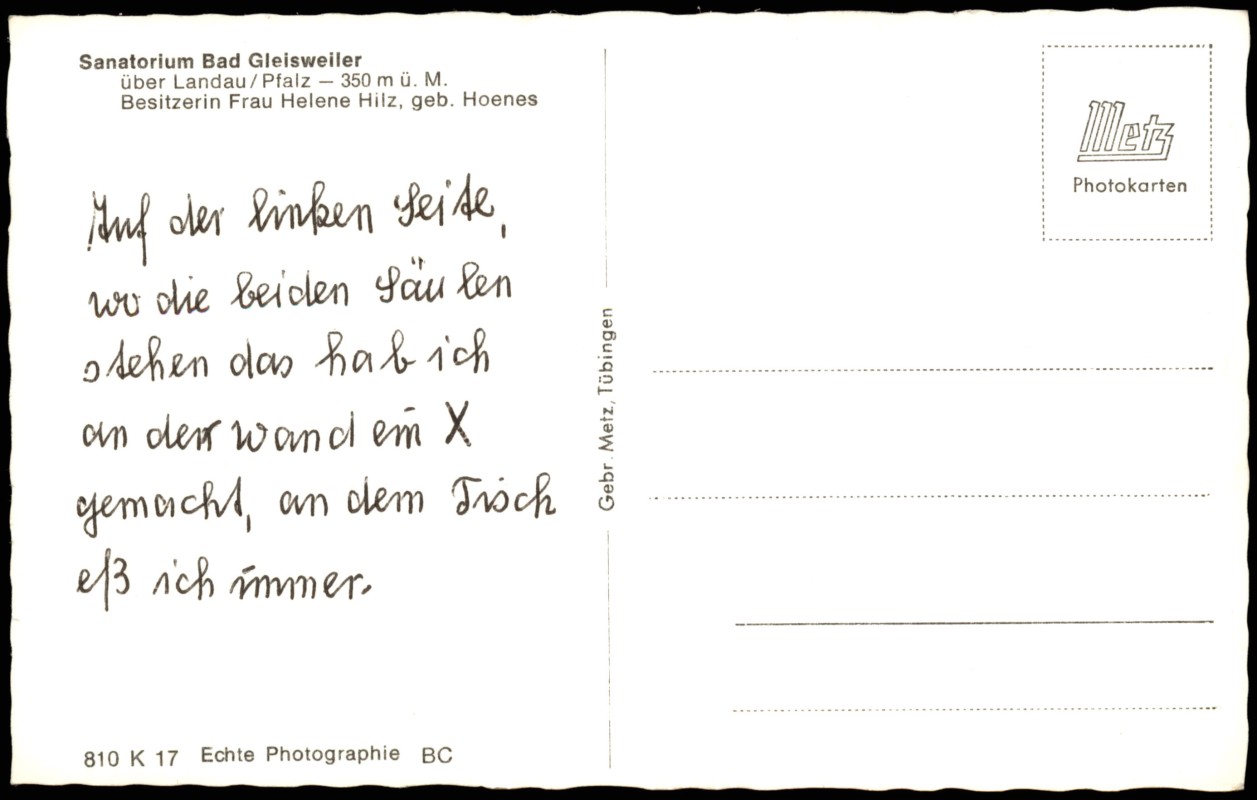 Sanatorium Bad Gleisweiler
über Landau/Pfalz — 350 m ü. M.
Besitzerin Frau Helene Hilz, geb. Hoenes
Auf der linken Seite,
wo die beiden Säulen
stehen das hab ich
an der wand ein X
gemacht, an dem Tisch
eß ich immer.
810 K 17 Echte Photographie BC
Gebr. Metz, Tübingen
Metz
Photokarten